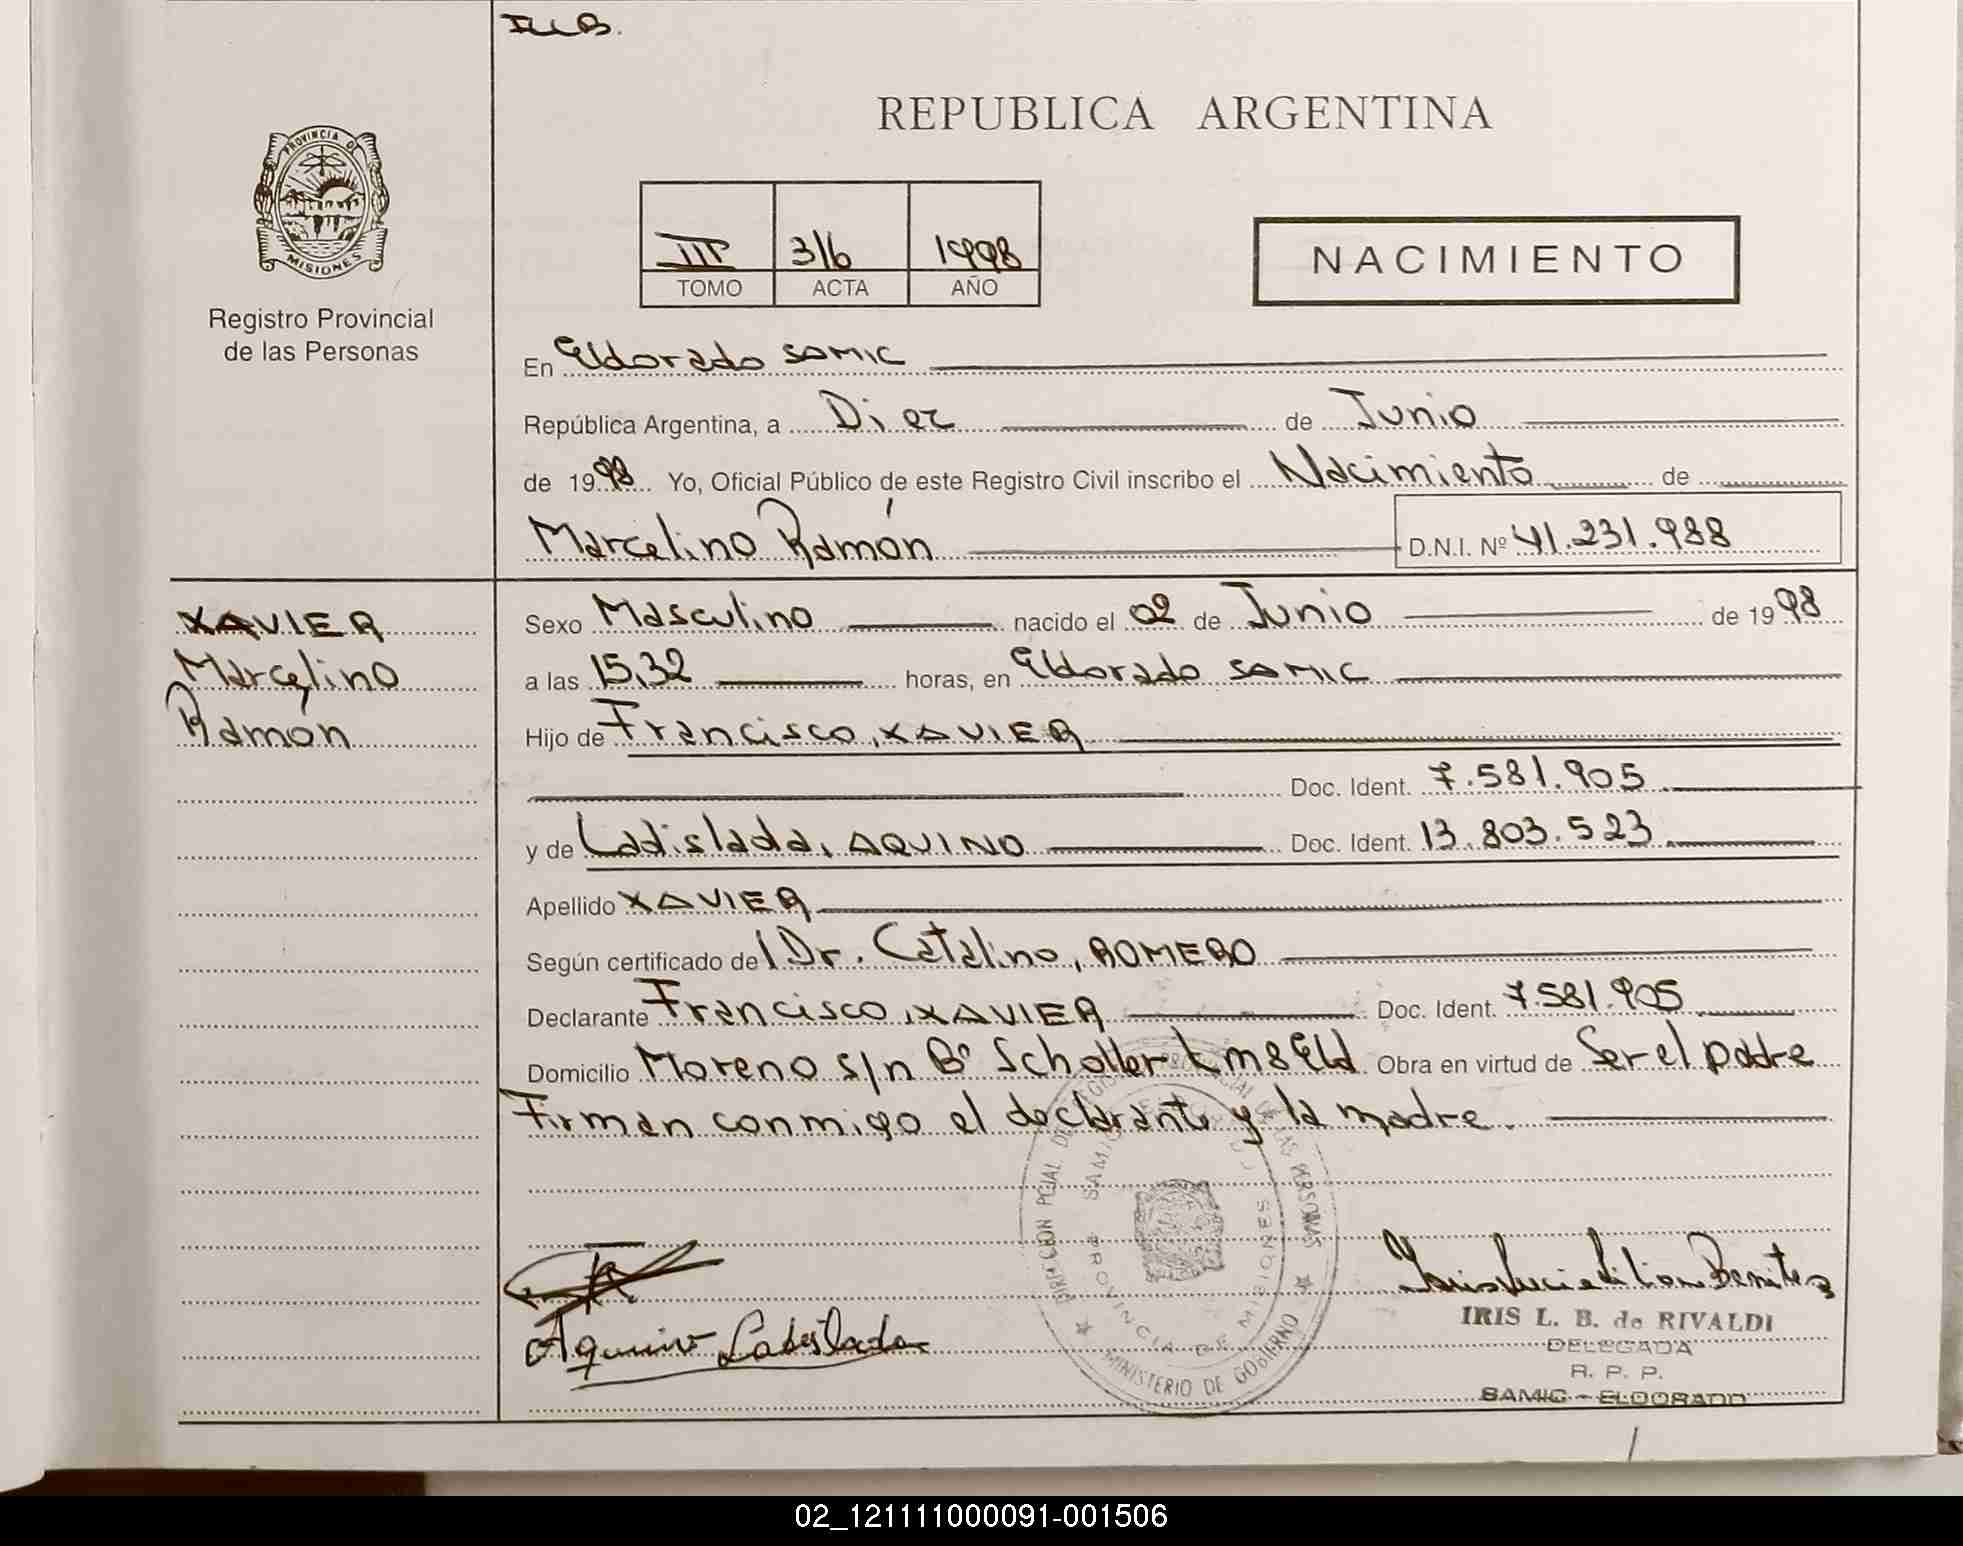 ILLB.
PROVINCIA DE
MISIONES
Registro Provincial
de las Personas
REPUBLICA ARGENTINA
III 316 1998
TOMO ACTA AÑO
NACIMIENTO
En Eldorado SAMIC
República Argentina, a Diez de Junio
de 1998 Yo, Oficial Público de este Registro Civil inscribo el Nacimiento de
Marcelino Ramón D.N.I. Nº 41.231.988
XAVIER
Marcelino
Ramón
Sexo Masculino nacido el 02 de Junio de 1998
a las 15,32 horas, en Eldorado SAMIC
Hijo de Francisco, XAVIER
Doc. Ident. 7.581.905
y de Ladislada, AQUINO Doc. Ident. 13.803.523
Apellido XAVIER
Según certificado de l Dr. Catalino, ROMERO
Declarante Francisco, XAVIER Doc. Ident. 7.581.905
Domicilio Moreno s/n Bº Scholler Km 8 Eld Obra en virtud de Ser el padre
Firman conmigo el declarante y la madre.
DIRECCION PCIAL DE REGISTRO PROVINCIAL DE LAS PERSONAS
MINISTERIO DE GOBIERNO
PROVINCIA DE MISIONES
Aquino Ladislada
IRIS L. B. de RIVALDI
DELEGADA
R. P. P.
SAMIC - ELDORADO
02_121111000091-001506